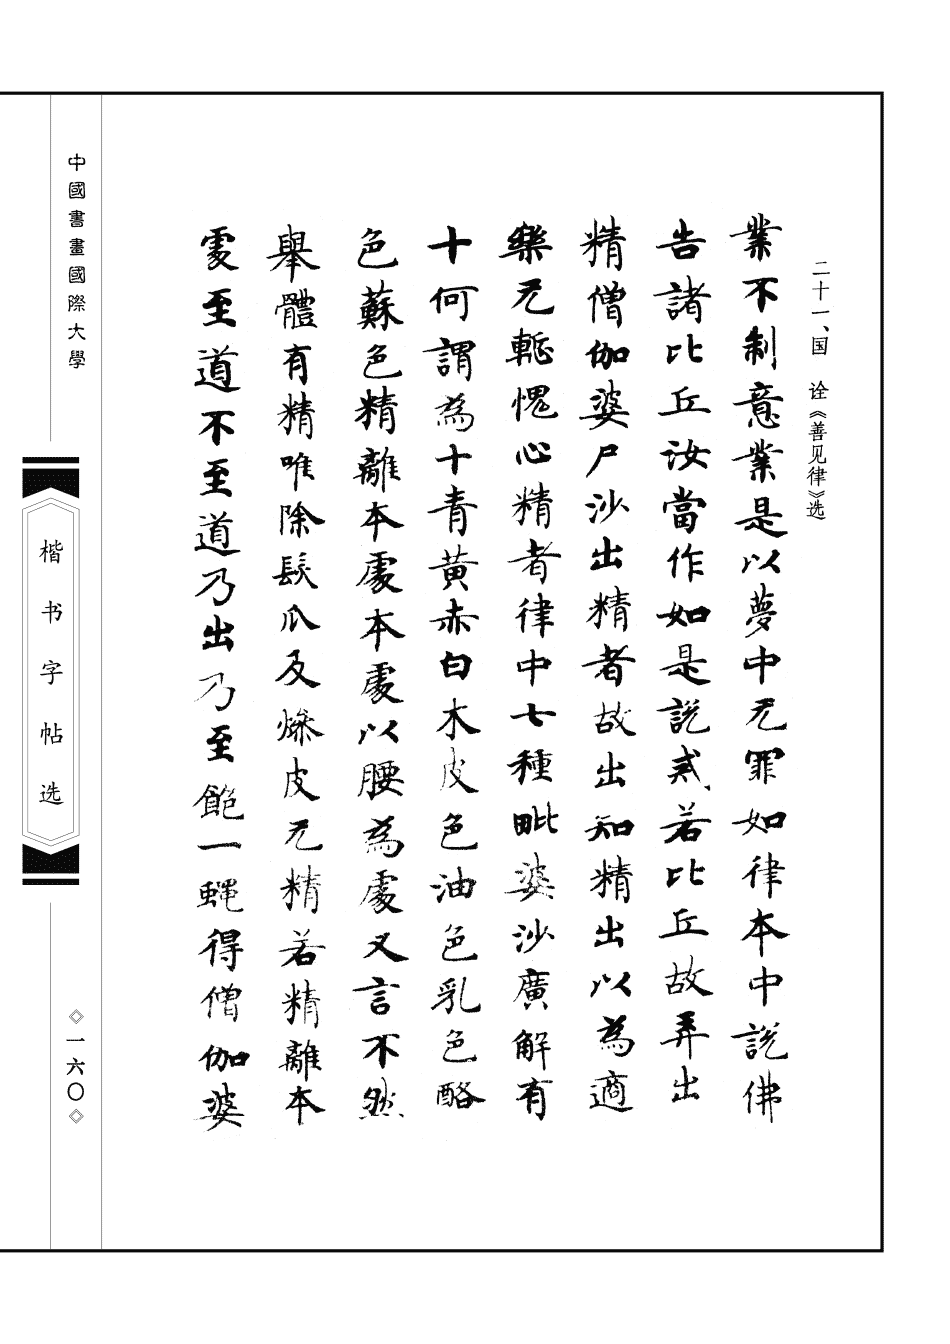 二十一、国 诠《善见律》选
業不制意業是以夢中无罪如律本中說佛
告諸比丘汝當作如是說戒若比丘故弄出
精僧伽婆尸沙出精者故出知精出以為適
樂无慙愧心精者律中七種毗婆沙廣解有
十何謂為十青黄赤白木皮色油色乳色酪
色蘇色精離本處本處以腰為處又言不然
舉體有精唯除髮爪及燥皮无精若精離本
處至道不至道乃出乃至飽一蝿得僧伽婆
中國書畫國際大學
楷书字帖选
◇一六〇◇